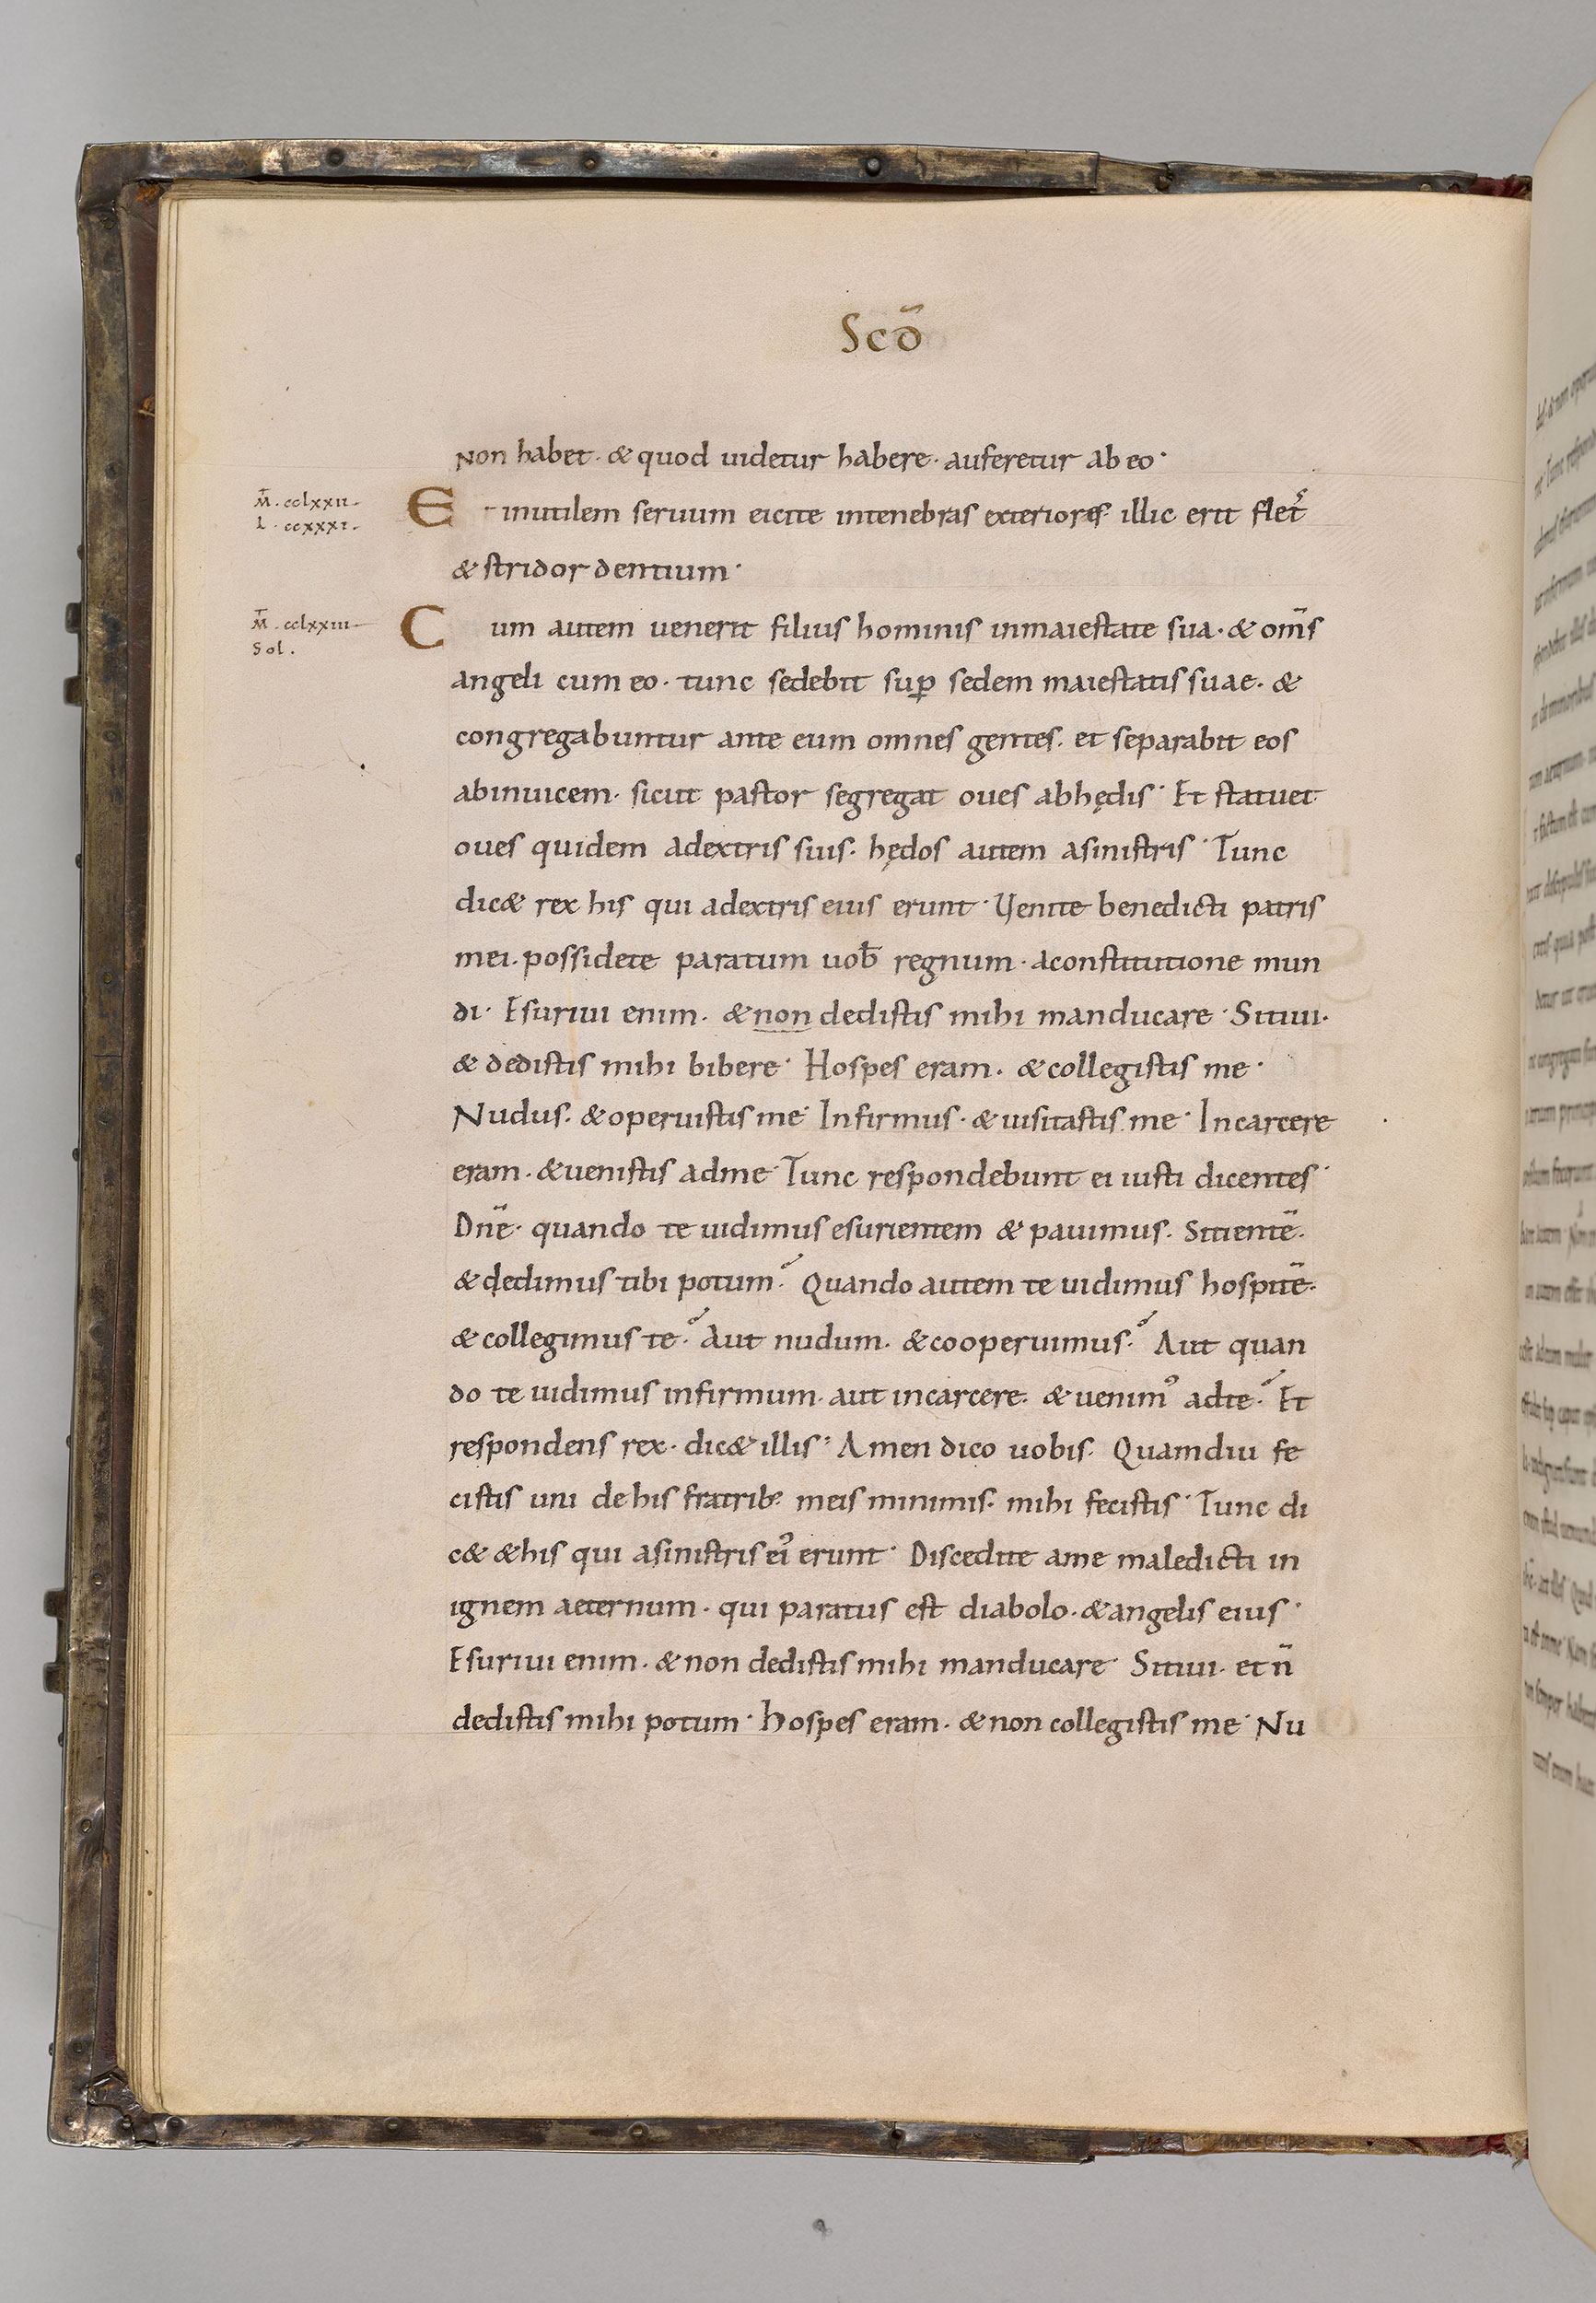 Scd̄
non habet· & quod uidetur habere· auferetur ab eo·
M̄·cclxxii·
l·ccxxxi·
Et inutilem seruum eicite intenebras exteriores· illic erit flet᷒
& stridor dentium·
M̄·cclxxiii
Sol.
Cum autem uenerit filius hominis inmaiestate sua· & om̄s
angeli cum eo· tunc sedebit suꝑ sedem maiestatis suae· &
congregabuntur ante eum omnes gentes· et separabit eos
abinuicem· sicut pastor segregat oues abhędis· Et statuet
oues quidem adextris suis· hędos autem asinistris· Tunc
dic& rex his qui adextris eius erunt· Uenite benedicti patris
mei· possidete paratum uob̄ regnum· aconstitutione mun
di· Esuriui enim· & non dedistis mihi manducare· Sitiui·
& dedistis mihi bibere· Hospes eram· & collegistis me·
Nudus· & operuistis me· Infirmus· & uisitastis me· Incarcere
eram· & uenistis adme· Tunc respondebunt ei iusti dicentes·
Dn̄e· quando te uidimus esurientem & pauimus· sitientē·
& dedimus tibi potum? Quando autem te uidimus hospitē·
& collegimus te? Aut nudum· & cooperuimus? Aut quan
do te uidimus infirmum· aut incarcere· & uenim᷒ adte? Et
respondens rex· dic& illis· Amen dico uobis· Quamdiu fe
cistis uni de his fratrib; meis minimis· mihi fecistis· Tunc di
c& & his qui asinistris ei᷒ erunt· Discedite ame maledicti in
ignem aeternum· qui paratus est diabolo· & angelis eius·
Esuriui enim· & non dedistis mihi manducare· Sitiui· et n̄
dedistis mihi potum· hospes eram· & non collegistis me· Nu